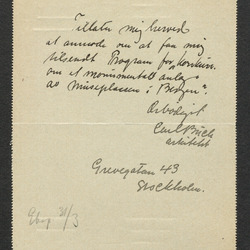 Tillater mig herved
at anmode om at faa mig
tilsendt Program for konkur.
om et monumentalt anlæg
av Museplassen i Bergen".
Ærbødigst
Carl Buch
arkitekt
Grevegatan 43
Stockholm.
31/3